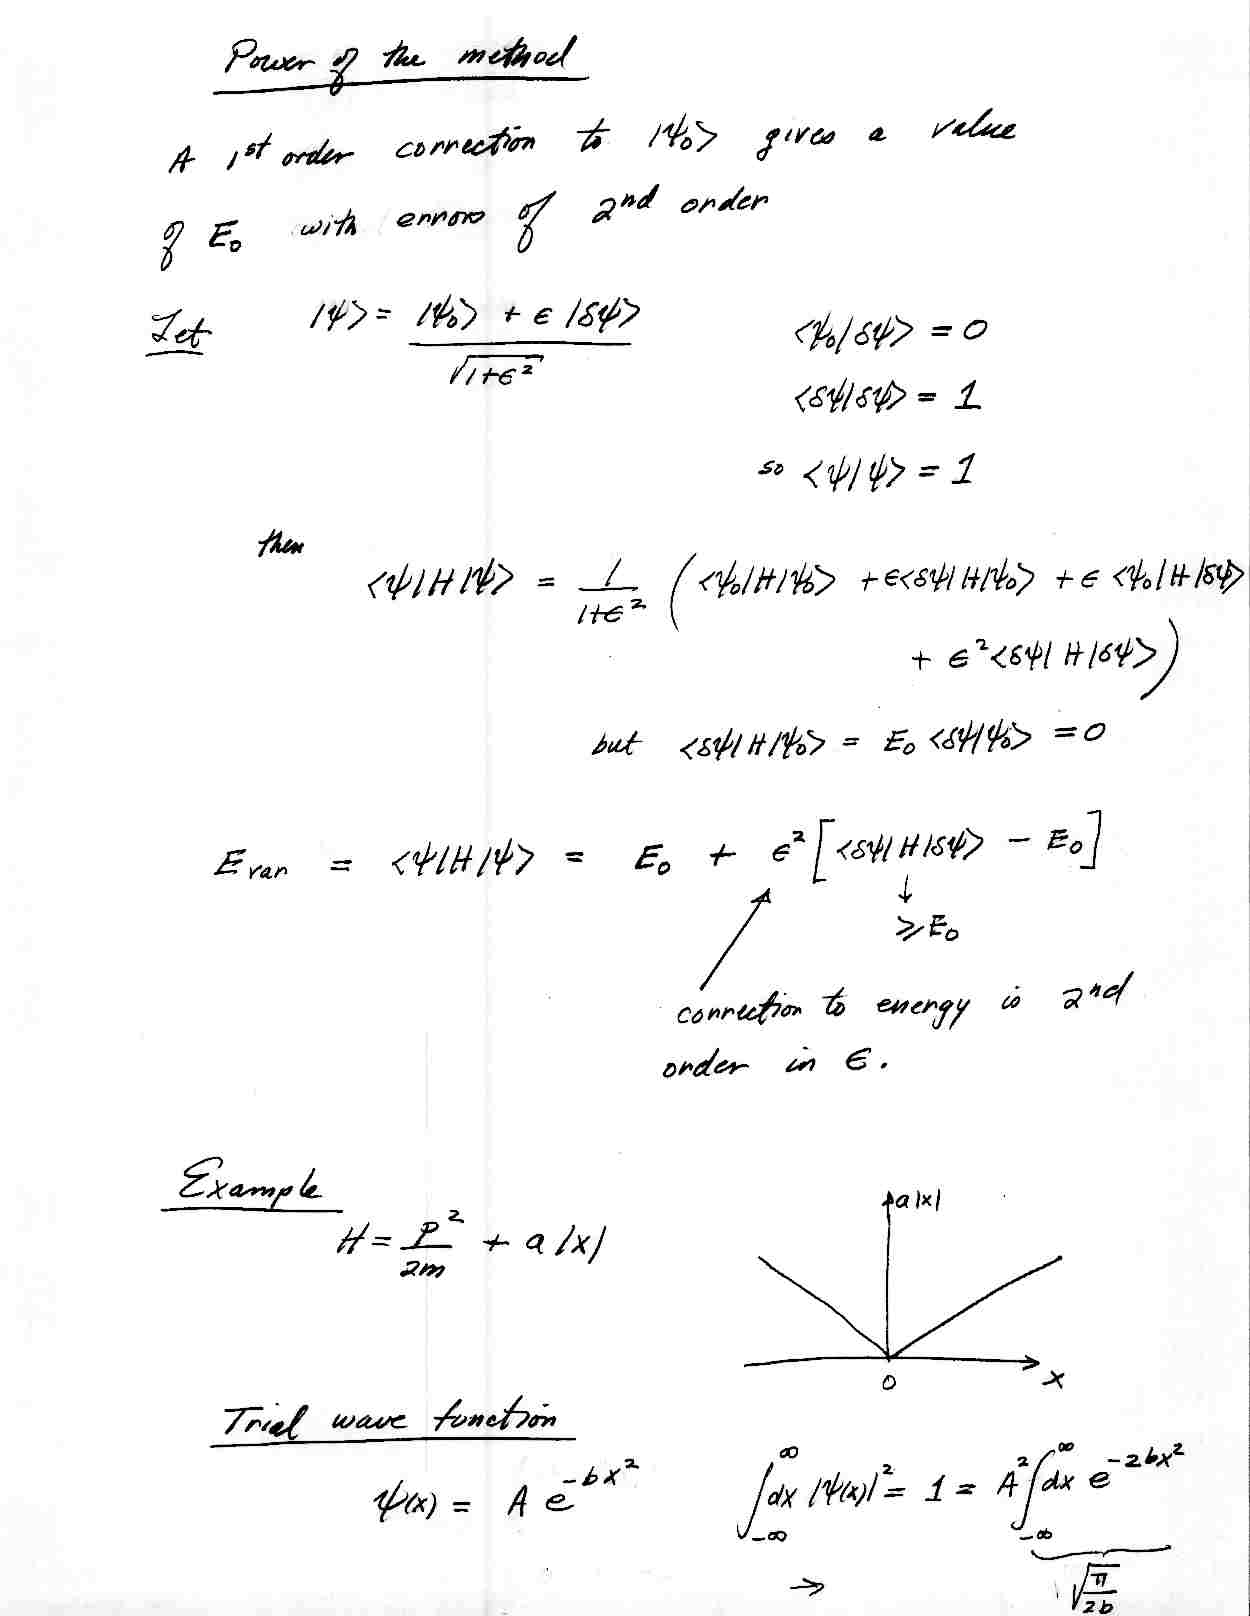 Power of the method
A 1st order correction to |ψ₀> gives a value
of E₀ with errors of 2nd order
Let |ψ> = (|ψ₀> + ϵ |δψ>) / √(1+ϵ²) <ψ₀|δψ> = 0
<δψ|δψ> = 1
so <ψ|ψ> = 1
then
<ψ|H|ψ> = 1/(1+ϵ²) ( <ψ₀|H|ψ₀> + ϵ<δψ|H|ψ₀> + ϵ <ψ₀|H|δψ>
+ ϵ²<δψ|H|δψ> )
but <δψ|H|ψ₀> = E₀ <δψ|ψ₀> = 0
E var = <ψ|H|ψ> = E₀ + ϵ² [<δψ|H|δψ> - E₀]
↓
⩾ E₀
correction to energy is 2nd
order in ϵ.
Example
H = p²/2m + a|x|
a|x|
0
x
Trial wave function
ψ(x) = A e^(-bx²) ∫_{-∞}^{∞} dx |ψ(x)|² = 1 = A² ∫_{-∞}^{∞} dx e^(-2bx²)
→ √(π/2b)